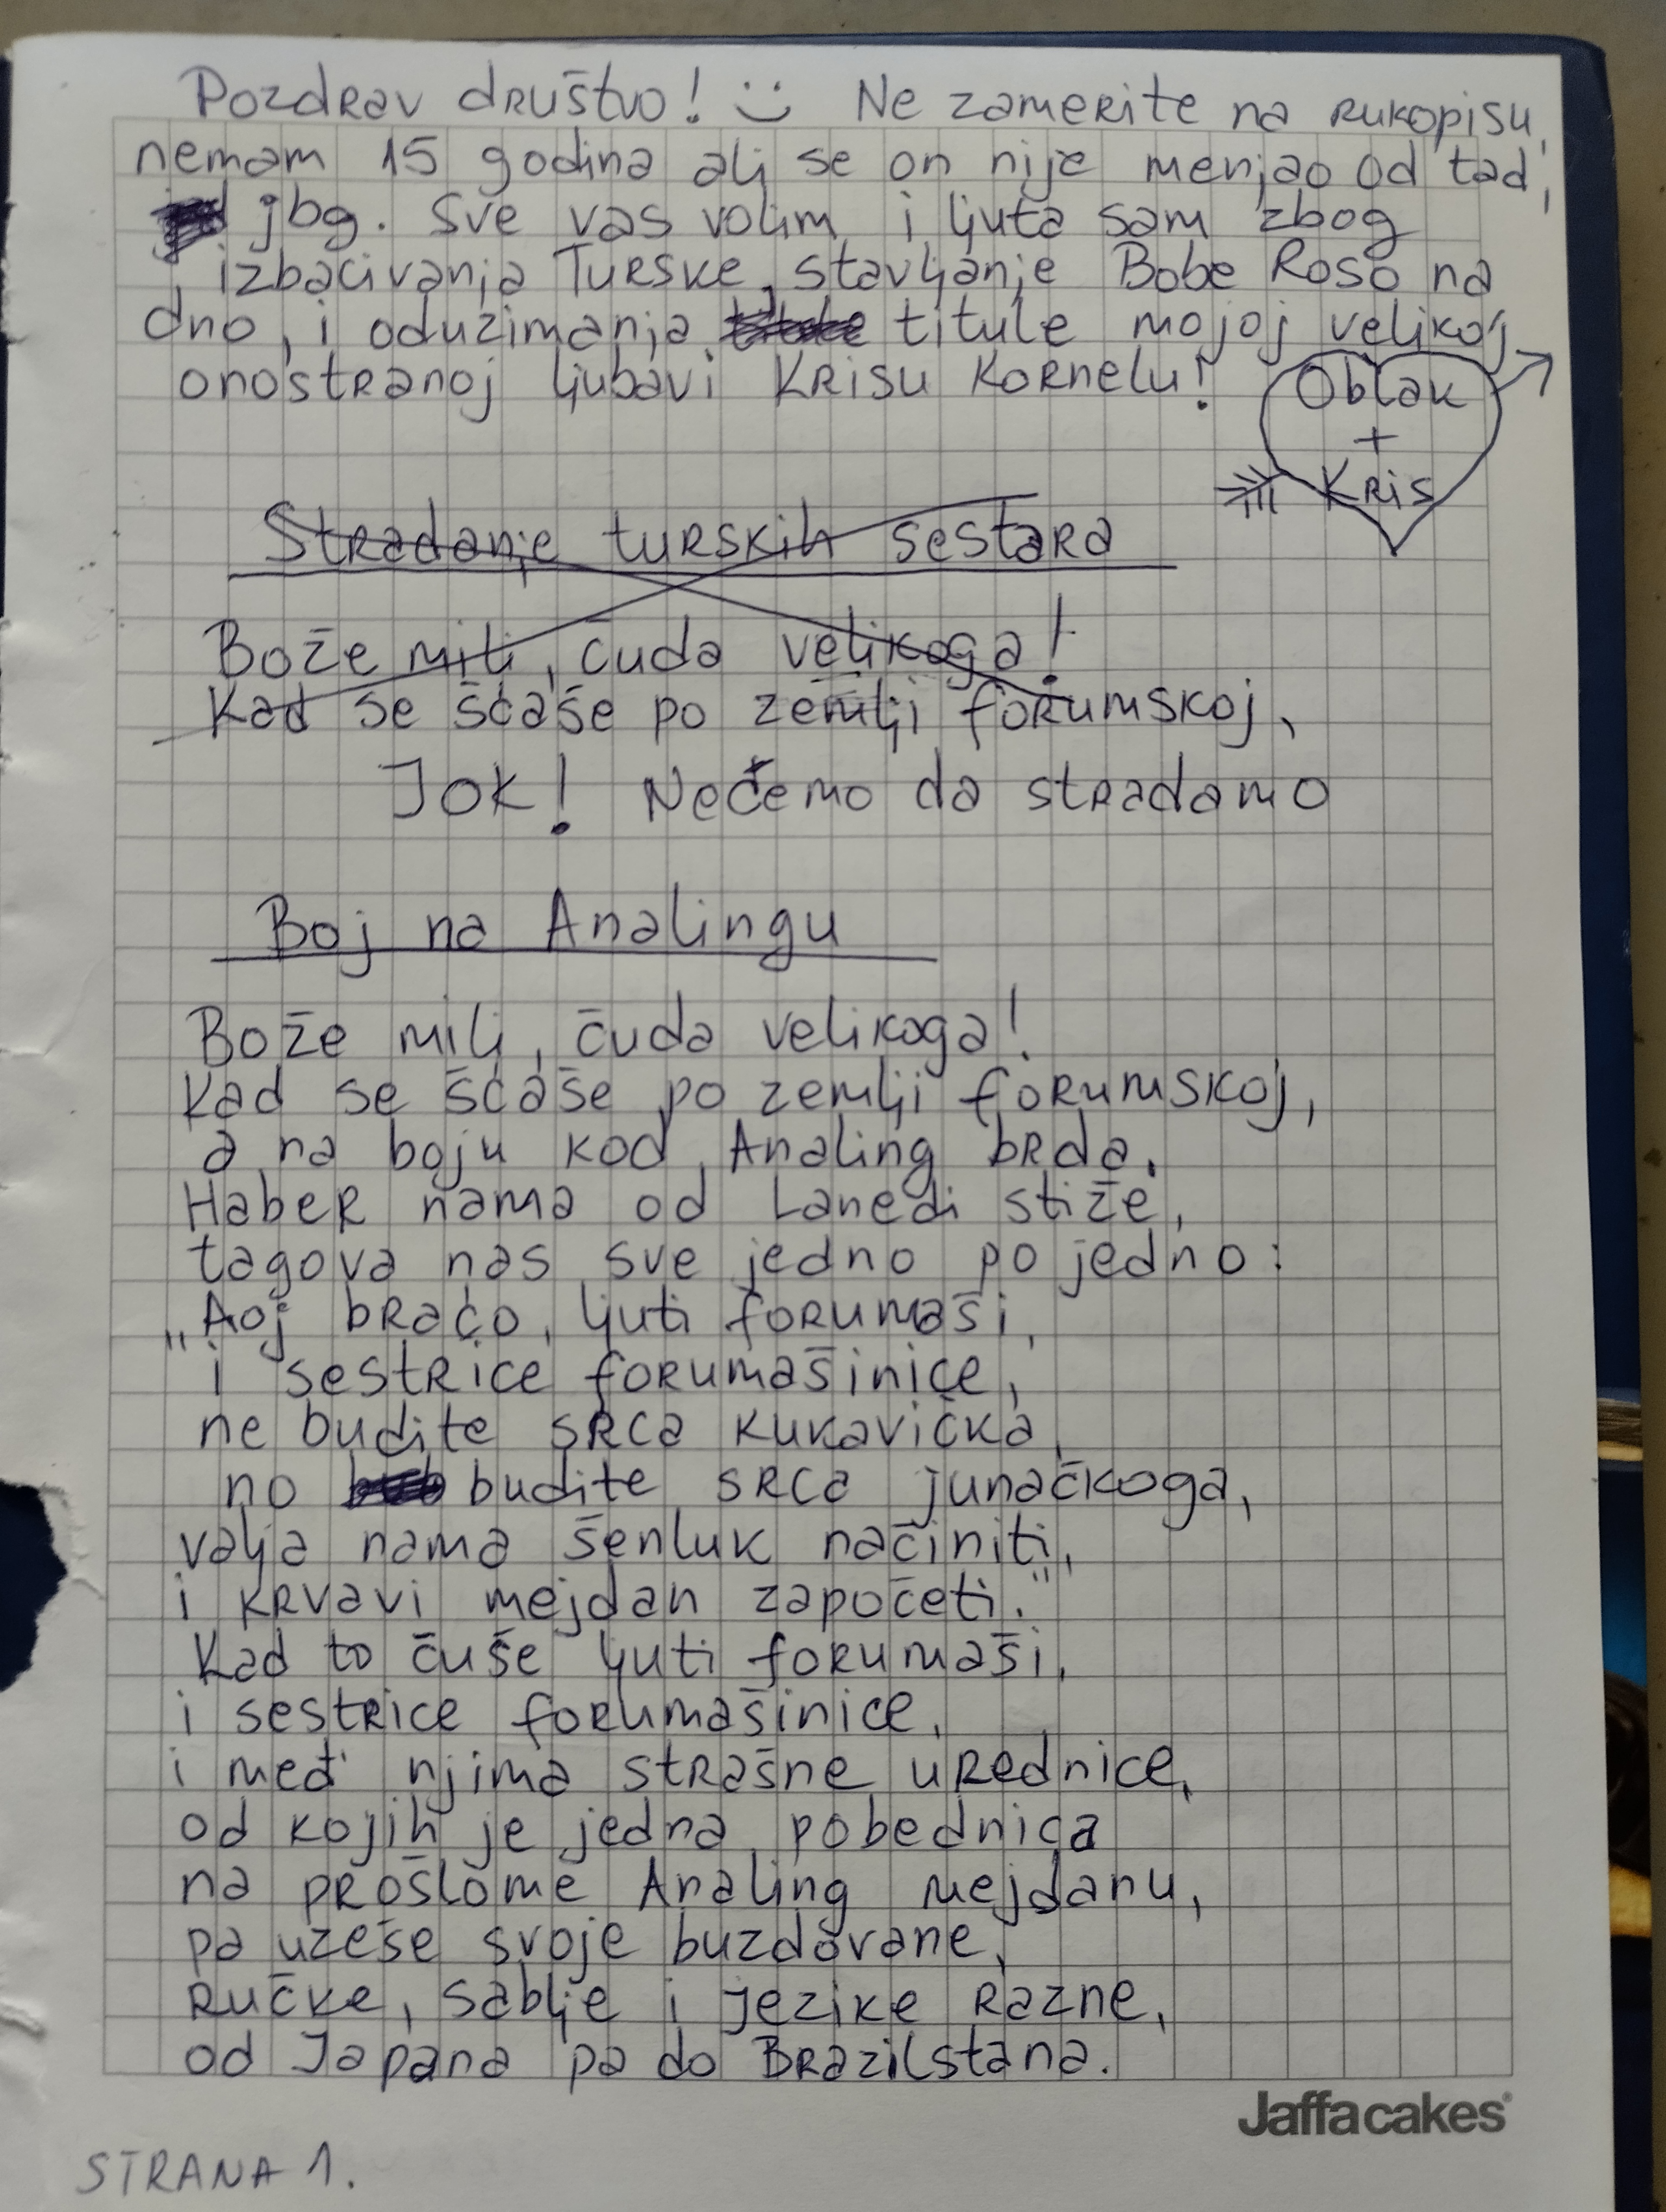 Pozdrav društvo! :) Ne zamerite na rukopisu,
nemam 15 godina ali se on nije menjao od tad,
jbg. Sve vas volim, i ljuta sam zbog
izbacivanja Turske, stavljanje Bobe Roso na
dno, i oduzimanja titule mojoj velikoj
onostranoj ljubavi Krisu Kornelu!
Oblak
+
Kris
Stradanje turskih sestara
Bože mili, čuda velikoga!
Kad se šćaše po zemlji forumskoj,
Jok! Nećemo da stradamo
Boj na Analingu
Bože mili, čuda velikoga!
Kad se šćaše po zemlji forumskoj,
a na boju kod Analing brda.
Haber nama od Lanedi stiže,
tagova nas sve jedno po jedno:
„Aoj braćo, ljuti forumaši,
i sestrice forumašinice,
ne budite srca kukavička,
no budite srca junačkoga,
valja nama šenluk načiniti,
i krvavi mejdan započeti."
Kad to čuše ljuti forumaši,
i sestrice forumašinice,
i međ' njima strašne urednice,
od kojih je jedna pobednica
na prošlome Analing mejdanu,
pa uzeše svoje buzdovane,
ručke, sablje i jezike razne,
od Japana pa do Brazilstana.
Jaffa cakes
STRANA 1.